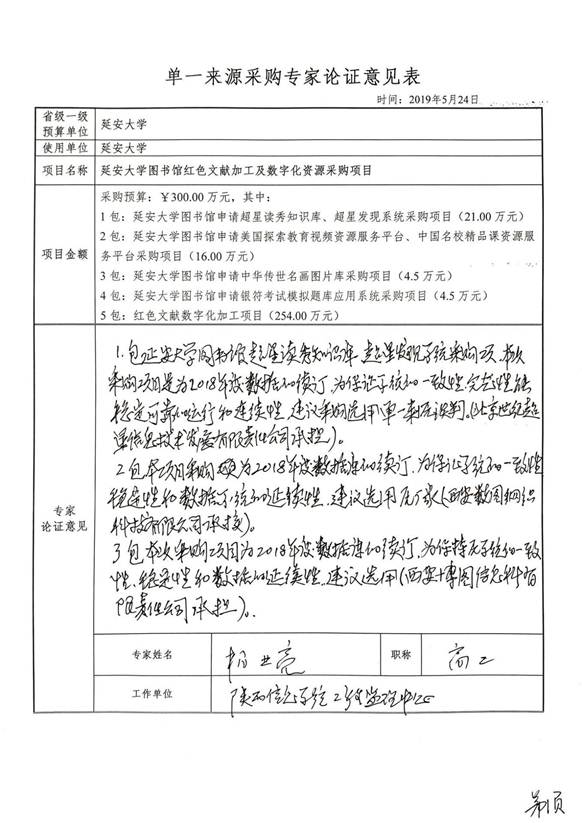 单一来源采购专家论证意见表
时间：2019年5月24日
省级一级
预算单位
延安大学
使用单位
延安大学
项目名称
延安大学图书馆红色文献加工及数字化资源采购项目
项目金额
采购预算：￥300.00万元，其中：
1包：延安大学图书馆申请超星读秀知识库、超星发现系统采购项目（21.00万元）
2包：延安大学图书馆申请美国探索教育视频资源服务平台、中国名校精品课资源服
务平台采购项目（16.00万元）
3包：延安大学图书馆申请中华传世名画图片库采购项目（4.5万元）
4包：延安大学图书馆申请银符考试模拟题库应用系统采购项目（4.5万元）
5包：红色文献数字化加工项目（254.00万元）
专家
论证意见
1.包延安大学图书馆超星读秀知识库 超星发现系统采购项，本次
采购项目是为2018年度数据的续订，为保证系统的一致性，完整性能
稳定可靠的运行和连续性，建议采购选用单一来源谈判。(北京世纪超
星信息技术发展有限责任公司承担)。
2包 本项目采购为2018年度数据库的续订，为保证系统的一致性
稳定性和数据系统的延续性，建议选用(西安数图网络
科技有限公司承接)。
3包 本次采购项目为2018年度数据库的续订，为保持系统的一致
性、稳定性和数据的延续性，建议选用(西安博图信息科有
限责任公司承担)。
专家姓名
职称
高工
工作单位
陕西信息系统工程监理中心
第1页